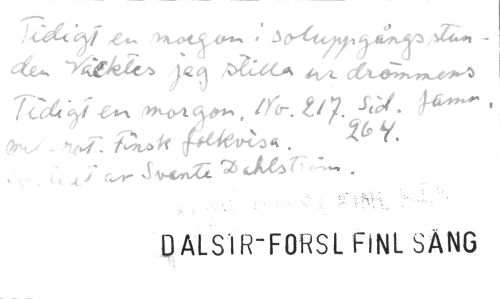 Tidigt en morgon i soluppgångsstun-
den Väcktes jag stilla ur drömmens
Tidigt en morgon. No. 217. Sid. famn.
264.
mel. not. Finsk folkvisa.
av Svante Dahlström.
DALSIR-FORSL FINL SÅNG